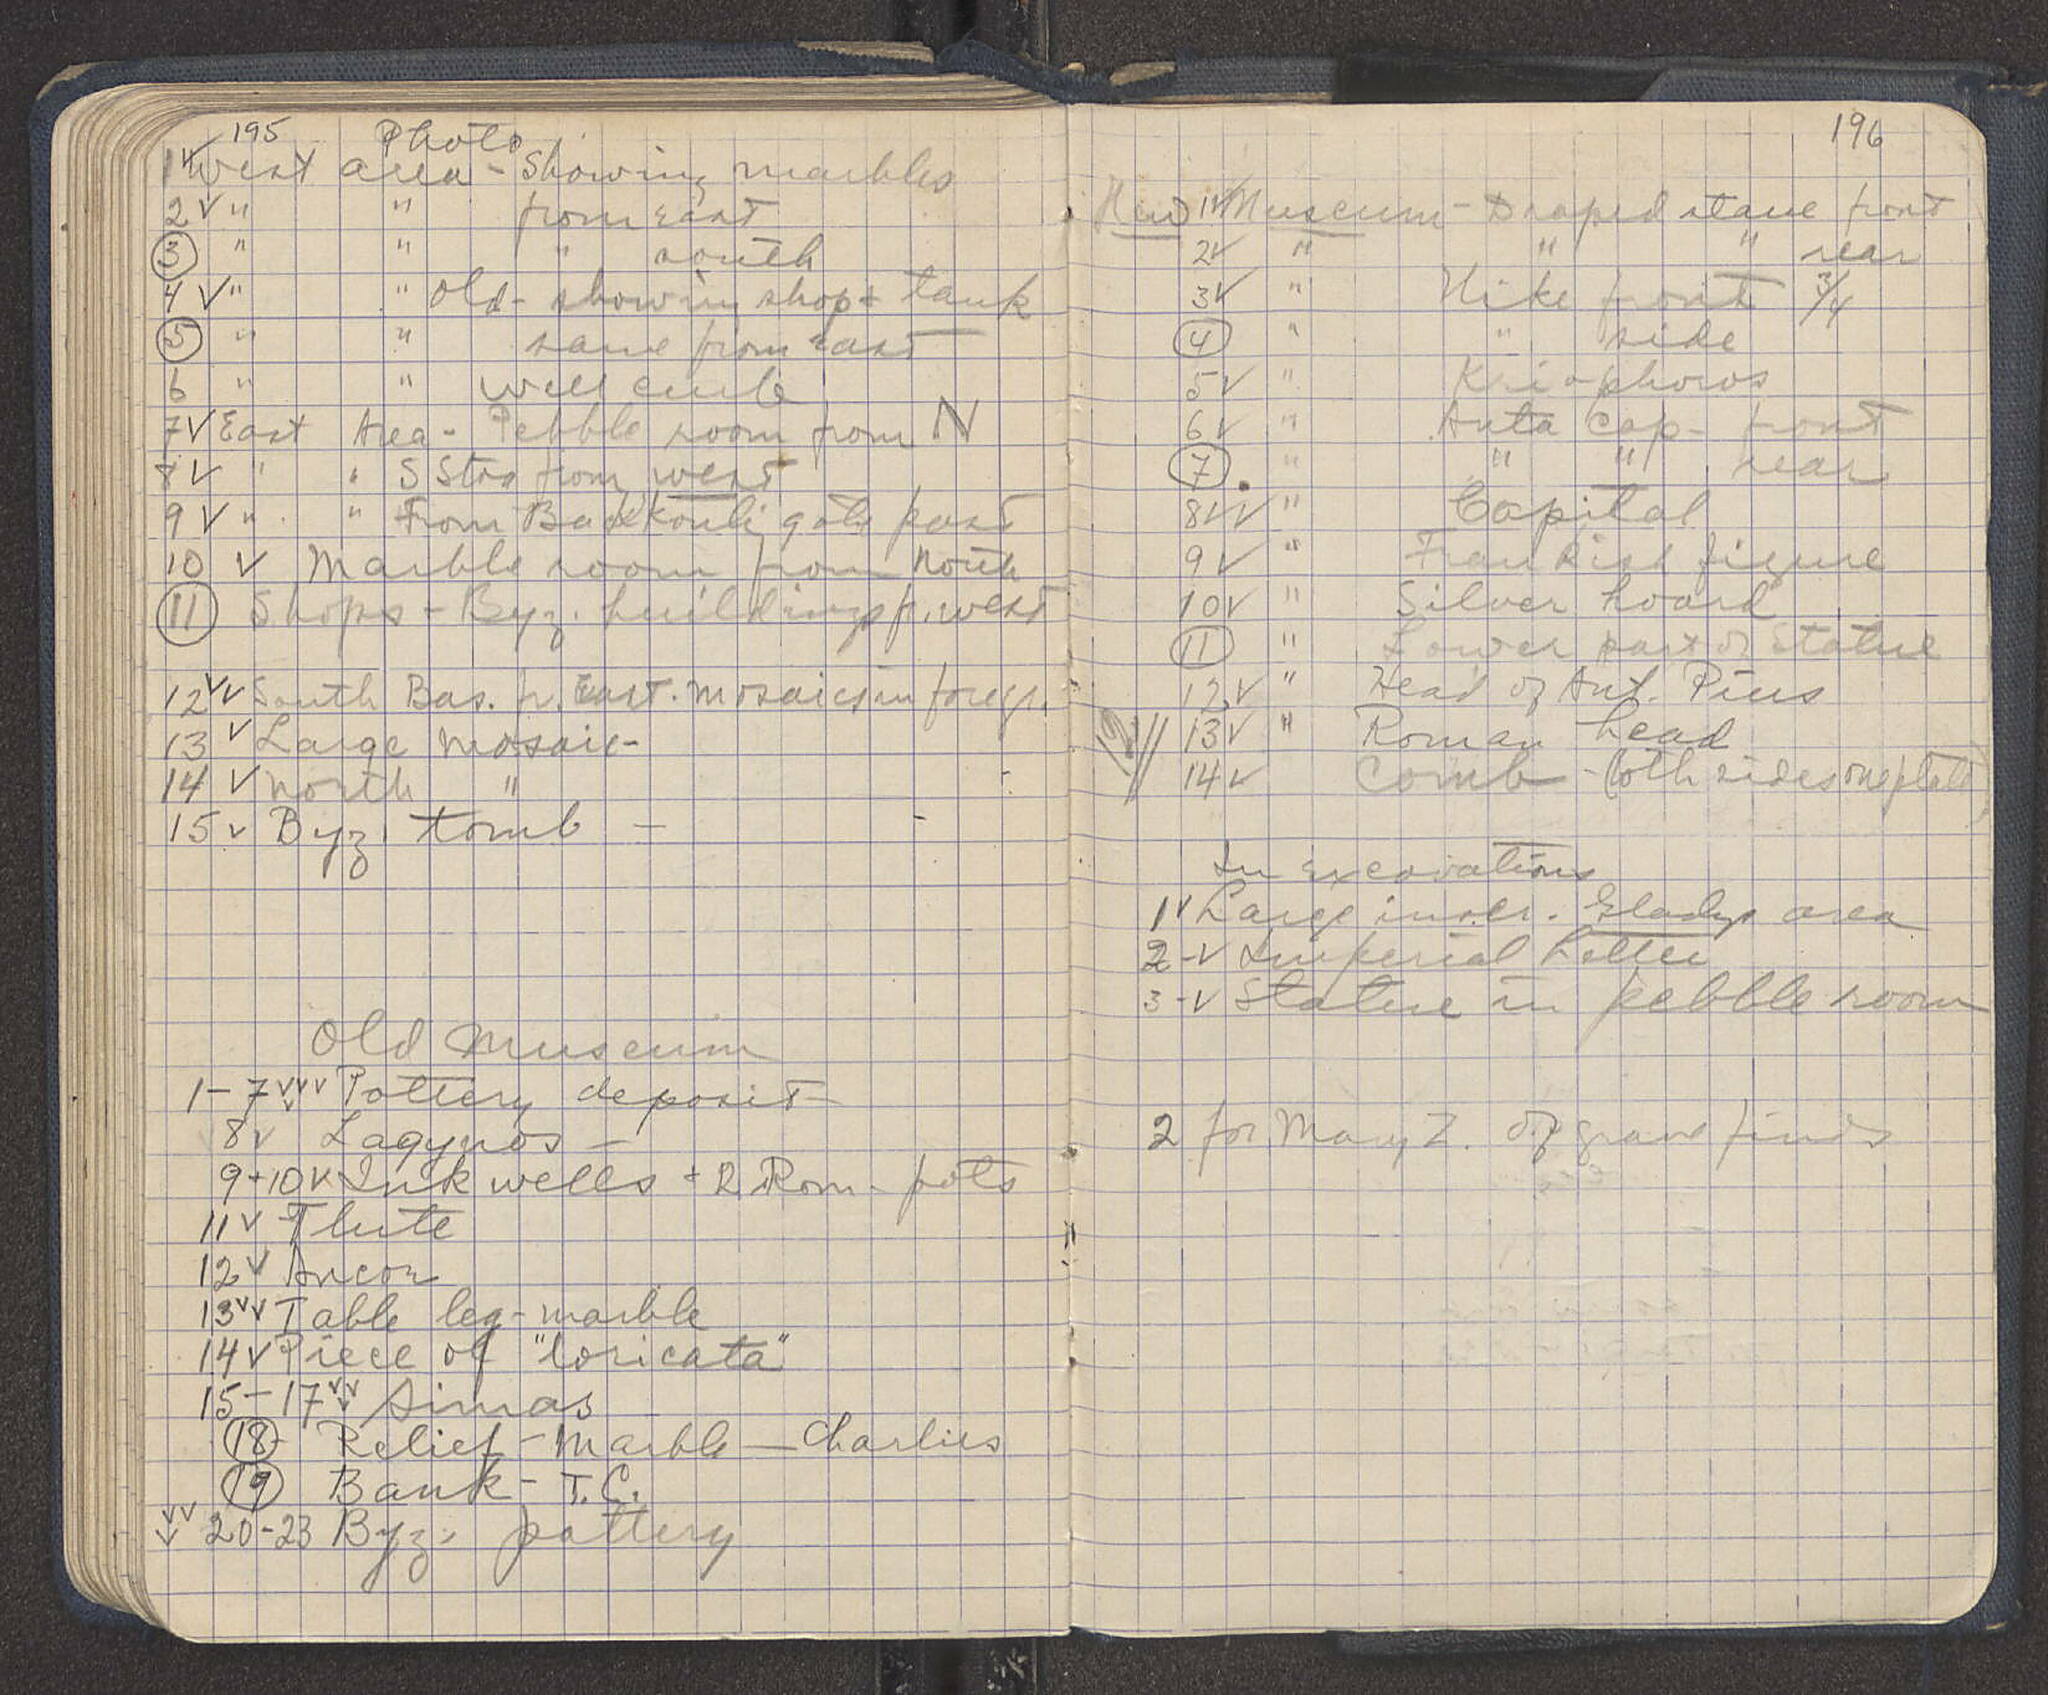 195 Photo
1 V West area - Showing marbles
2 V " " from East
③ " " " south
4 V " " old - showing shop + tank
⑤ " " same from east
6 " " well curb
7 V East Area - Pebble room from N
8 V " " S Stoa from west
9 V " " From Bad Kouli gate past
10 V Marble room from North
⑪ Shops - Byz. buildings f. west
12 V V South Bas. fr. East. mosaics in foregr.
13 V Large mosaic -
14 V north "
15 V Byz. tomb -
Old Museum
1 - 7 V V V V Pottery deposit -
8 V Lagynos -
9 + 10 V Ink wells + 2 Rom. pots
11 V Flute
12 V Ancor
13 V V Table leg - marble
14 V Piece of "loricata"
15 - 17 V V V Simas
⑱ - Relief - Marble - Charlies
⑲ Bank - T.C.
V V V 20 - 23 Byz. pottery
196
New 1 V Museum - Draped statue front
2 V " " " rear
3 V " Nike front 3/4
④ " " side
5 V " Kriophoros
6 V " Anta Cap - front
⑦ " " " rear
8 V V " Capital
9 V " Frankish figure
10 V " Silver hoard
⑪ " Lower part of Statue
12 V " Head of Ant. Pius
13 V " Roman head
14 V Comb - (both sides one plate)
In Excavations
1 V Large inscr. Gladys area
2 - V Imperial Letter
3 - V Statue in pebble room
2 for Mary Z. of grave finds